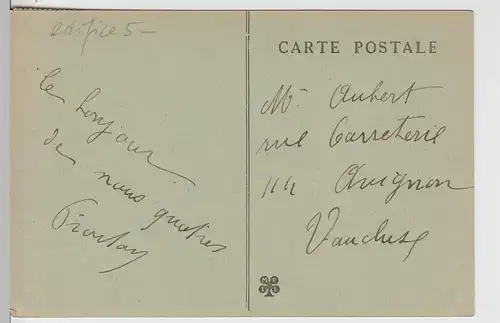 edifice 5 -
CARTE POSTALE
le bonjour
de nous quatres
Mr Aubert
rue Carreterie
114 Avignon
Vaucluse